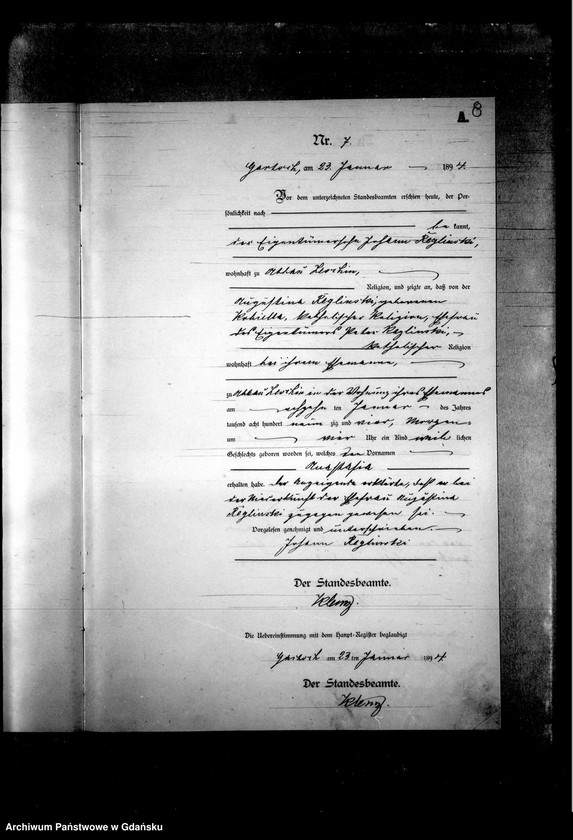 A. 8
Nr. 7
am 23. Januar 1894.
Vor dem unterzeichneten Standesbeamten erschien heute, der Per-
sönlichkeit nach
be kannt,
der Eigentümersohn Johann Reglinski,
wohnhaft zu Abbau
Religion, und zeigte an, daß von der
Augustina Reglinski, geborenen
katholischer Religion, Ehefrau
des Eigentümers Peter Reglinski,
katholischer Religion
wohnhaft bei ihrem Ehemanne,
zu Abbau in der Wohnung ihres Ehemannes
am achzehn ten Januar des Jahres
tausend acht hundert neun zig und vier, Morgens
um vier Uhr ein Kind weib lichen
Geschlechts geboren worden sei, welches den Vornamen
Anastasia
erhalten habe. Der Anzeigende erklärte, daß er bei
der Niederkunft der Ehefrau Augustina
Reglinski zugegen gewesen sei.
Vorgelesen genehmigt und unterschrieben.
Johann Reglinski
Der Standesbeamte.
Die Uebereinstimmung mit dem Haupt-Register beglaubigt
am 23 ten Januar 1894
Der Standesbeamte.
Archiwum Państwowe w Gdańsku